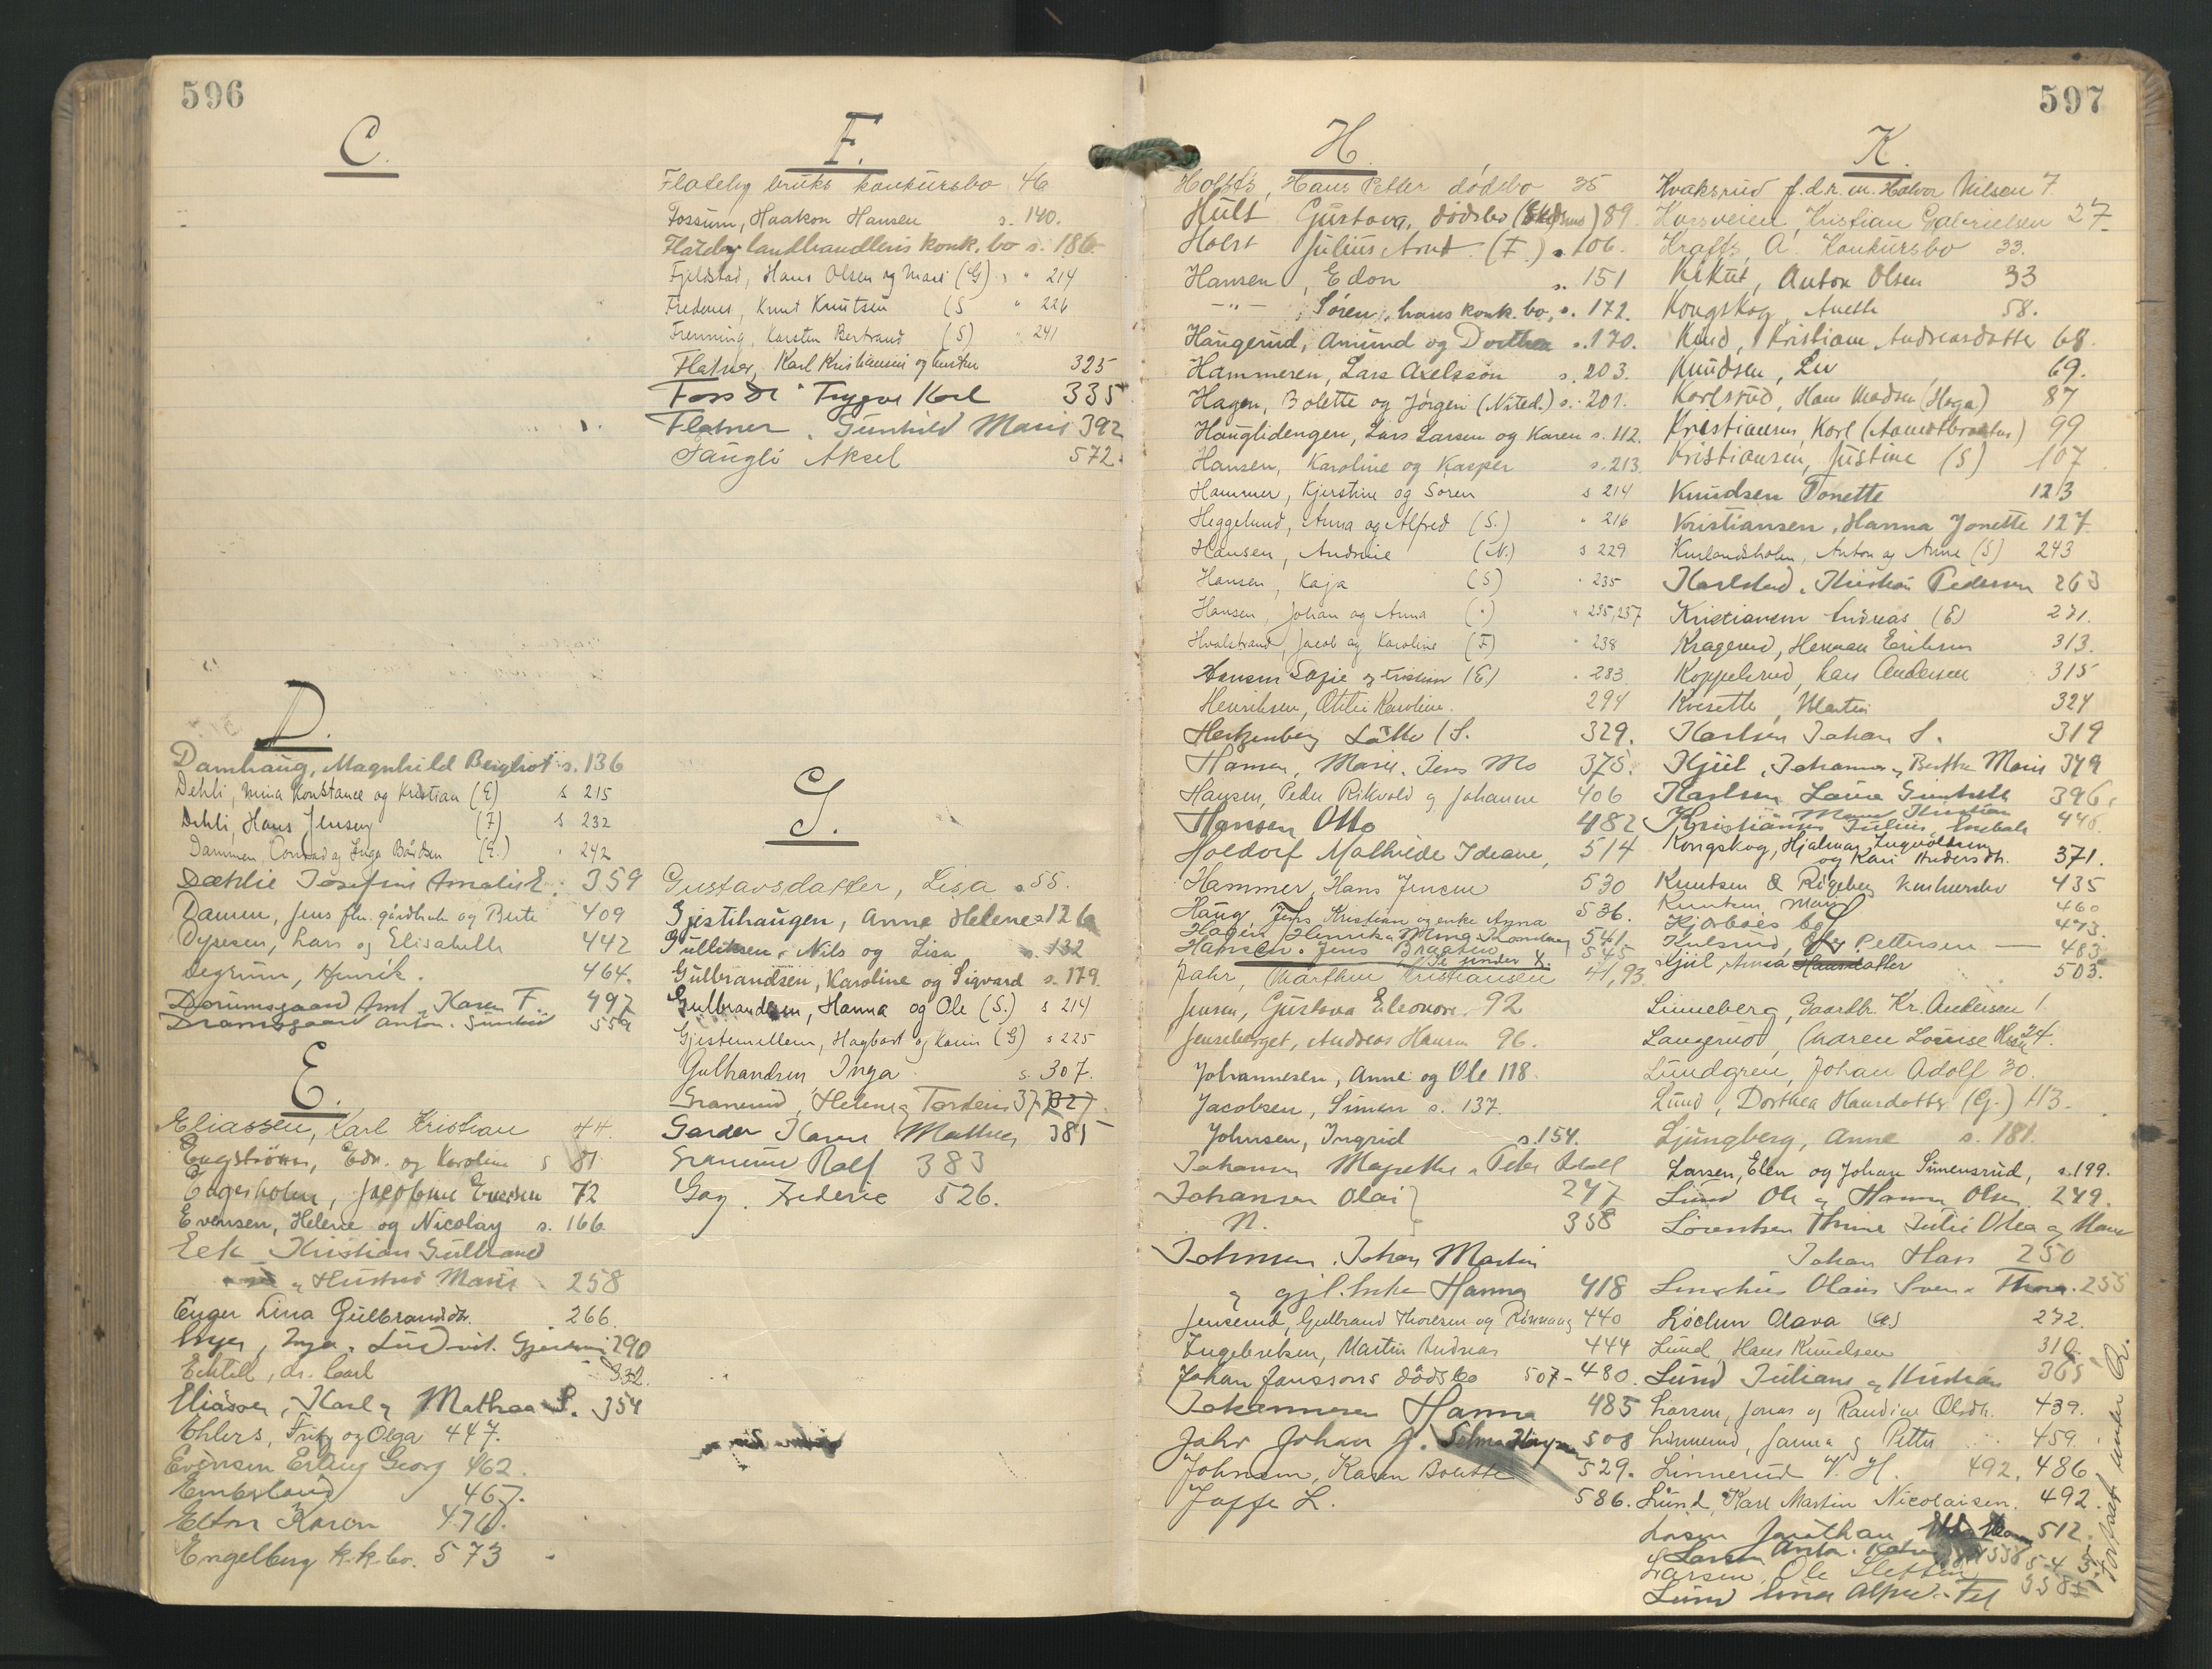 596
C.
D.
Damhaug, Magnhild Bergliot s. 136
Dehli, Mina Konstance og Kristian (E) s 215
Dehli, Hans Jensen (F) s 232
Dammen, Conrad og Inga Bårdsen (E.) " 242
Dæhlie Josefine Amalie E. 359
Damen, Jens fhv. gårdbruk og Berte 409
Dypesen, Lars og Elisabeth 442
Degrum, Henrik. 464.
Dorumsgaard Aml. Karen F. 497
Dramsgaard Anton. Gunhild 559
E.
Eliassen, Karl Kristian 44.
Engstrøm, Edv. og Karoline s 81
Engesholm, Jacobine Evensen 72
Evensen, Helene og Nicolay s. 166
Eek Kristian Gulbrand
og Hustrud Marie 258
Enger Lina Gulbrandsdtr. 266.
Enger, Inga. Ludvik. 290
Echtell, dr. Carl 332.
Eliassen, Karl og Mathea S. 354
Ehlers, Fritz og Olga 447.
Evensen Erling Georg 462.
Embsland 467.
Elton Karen 470.
Engelberg k.k.bo. 573
F.
Flateby bruks konkursbo 46
Fossum, Haakon Hansen s. 140.
Flateby landhandleris konk. bo s. 186.
Fjeldstad, Hans Olsen og Mari (G) s " 214
Fredenes, Knut Knutsen (S " 226
Frenning, Karsten Bertrand (S) " 241
Flatner, Karl Kristiansen og hustru 325
Foss Trygve Karl 335
Flatner, Gunhild Marie 392
Faugli Aksel 572.
G.
Gustavsdatter, Lisa s 55.
Gjestihaugen, Anne Helene s 126
Gulliksen, Nils og Lisa s. 132
Gulbrandsen, Karoline og Sigvard s. 179.
Gulbrandsen, Hanna og Ole (S.) s 214
Gjestemellem, Hagbart og Karin (G) s 225
Gulbrandsen Inga s. 307.
Granerud, Helene og Torstein 377 327
Garder Karen Mathea 385
Granerud Rolf 383
Gay. Frederic 526.
597
H.
Holst's, Hans Petter dødsbo 35
Hult Gustava, dødsbo 89.
Holst Julius Arnt (F.) s 106.
Hansen, Edon s. 151
—"— , Søren, hans konk. bo, s. 172.
Haugerud, Amund og Dorthea s. 170.
Hammeren, Lars Axelsson s. 203.
Hagen, Bolette og Jørgen (Nited.) s. 201.
Hauglidengen, Lars Larsen og Karen s. 112.
Hansen, Karoline og Kasper s. 213.
Hammer, Kjerstine og Søren s 214
Heggelund, Anna og Alfred (S.) " 216
Hansen, Andrine (N.) s 229
Hansen, Kaja (S) " 235
Hansen, Johan og Anna (") " 235, 237
Hvalstrand, Jacob og Karoline (F) " 238
Hansen Sofie og Kristian (E) " 283
Henriksen, Otilie Karoline. 294
Hertzenberg Lotte (S. 329.
Hansen, Marie. Jens Mo 375.
Hansen, Peder Rikvold og Johanne 406
Hansen Otto 482
Holdorf Mathilde Ideane, 514
Hammer, Hans Jensen 530
Haug, Jens Kristian og enke Agna 536.
Hagen Henrik 541
Hansen. Jens 545
Se under X.
Jahr, Marthin Kristiansen 41, 93
Jensen, Gustava Eleonore 92
Jenseberget, Andreas Hansen 96.
Johannesen, Anne og Ole 118.
Jacobsen, Simen s. 137.
Johnsen, Ingrid s. 154.
Johansen Magrethe og Peter Adolf
Johansen Olai 247
N. 358
Johnsen. Johan Martin
og gjl. enke Hanna 418
Jenserud, Gulbrand Thoresen og Rønnaug 440
Ingebretsen, Martin Andreas 444
Johan Janssons dødsbo 507 - 480.
Johannesen Hanna 485
Jahr Johan J. Selma 508
Johnsen, Karen Bolette 529.
Joffe L. 586.
K.
Kvaksrud f.d.r.m. Halvor Nilsen 7.
Korsveien, Kristian Gabrielsen 27.
Krafft, A. Konkursbo 33.
Kikut, Anton Olsen 33
Kongskog, Anette 58.
Kind, Kristiane Andreasdatter 68.
Knudsen, Liv 69.
Karlsrud, Hans Madsen (Hoga) 87
Kristiansen, Karl 99
Kristiansen, Justine (S) 107
Knudsen Tonette 123
Kristiansen, Hanna Jonette 127.
Kurlandsholm, Anton og Anne (S) 243
Karlstad, Kristian Pedersen 263
Kristiansen Andreas (E) 271.
Kragerud, Herman Eriksen 313.
Koppelsrud, Lars Andersen 315
Kvesette, Martin 324
Karlsen Johan S. 319
Kjiil, Johannes og Berthe Marie 349
Karlsen Laura Gunhild 396.
Kristiansen Julius 446.
Kongskog, Hjalmar Ingvoldsen
og Kari Andersdtr. 371.
Knutsen & Rigeberg konkursbo 435
Knutsen Marie 460
Kjørboes bo 473.
Kulsrud, Pettersen — 483.
Kjiil Anna Hansdatter 503.
L
Linneberg, Gaardbr. Kr. Andersen 1.
Langerud, Maren Lovise Olsen 24.
Lundgren, Johan Adolf 30.
Lund, Dorthea Hansdatter (G.) 113.
Ljungberg, Anne s. 181.
Larsen, Elen og Johan Simensrud, s. 199.
Lund Ole og Hanna Olsen 249.
Lorentsen Thrine Julie Olea og Hans
Johan Hans 250
Lenshus Olaus Sven og Thora. 255
Løchen Olava 272.
Lund, Hans Knudsen 310.
Lund Juliane og Kristian 365
Larsen, Jonas og Randine Olsdtr. 439.
Linnerud, Janna og Petter 459.
Linnerud V. H. 492, 486
Lund, Karl Martin Nicolaisen. 492.
Larsen Jonathan 512.
Larsen Anton.
Larsen, Ole Sletten 543
Lund Einar Alfred. Fet 558
Fortsat under Q.